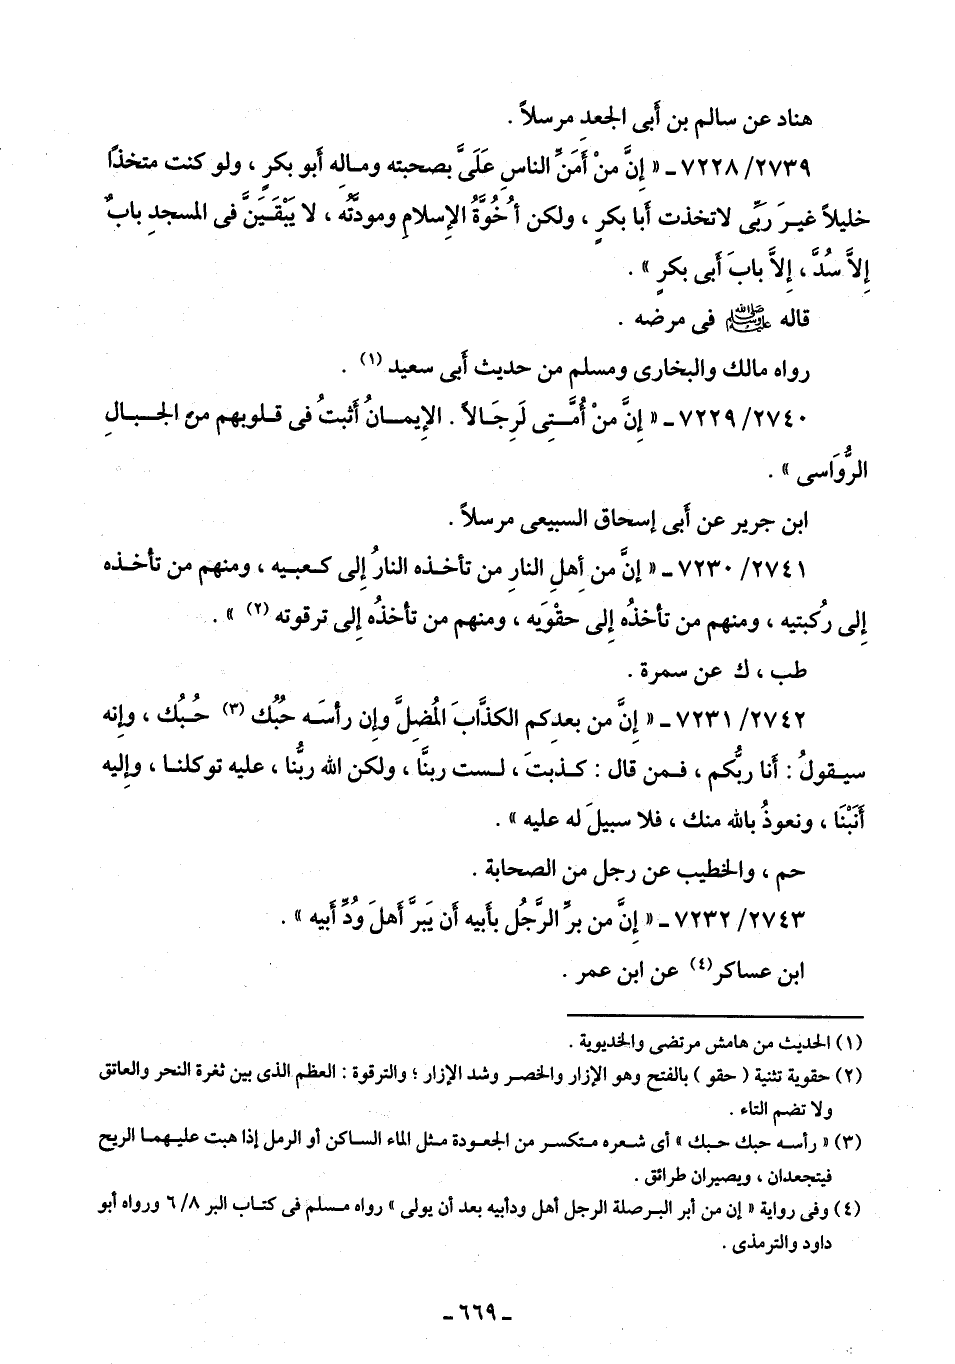 هناد عن سالم بن أَبى الجعد مرسلاً .
٢٧٣٩/ ٧٢٢٨ ـ « إِنَّ منْ أَمَنِّ الناسِ عَلَىَّ بصحبته وماله أَبو بكرٍ ، ولو كنت متخذًا
خليلاً غيرَ رَبِّى لاتخذت أَبا بكرٍ ، ولكن أُخُوَّةُ الإِسلامِ ومودَّتُه ، لا يَبْقَيَنَّ فى المسجدِ بابٌ
إِلاَّ سُدَّ ، إِلاَّ بابَ أَبى بكرٍ » .
قاله ﷺ فى مرضه .
رواه مالك والبخارى ومسلم من حديث أَبى سعيد (١) .
٢٧٤٠/ ٧٢٢٩ ـ « إِنَّ منْ أُمَّتِى لَرِجَالاً . الإِيمانُ أَثبتُ فى قلوبهم من الجبالِ
الرُّوَاسى » .
ابن جرير عن أَبى إِسحاق السبيعى مرسلاً .
٢٧٤١/ ٧٢٣٠ ـ « إِنَّ من أهلِ النارِ من تأخذه النارُ إِلى كعبيه ، ومنهم من تأخذه
إِلى رُكبتيه ، ومنهم من تأخذُه إِلى حقْوَيه ، ومنهم من تأخذُه إِلى ترقوته (٢) » .
طب ، ك عن سمرة .
٢٧٤٢/ ٧٢٣١ ـ « إِنَّ من بعدِكم الكذَّابَ المُضِلَّ وإِن رأسَه حُبُك (٣) حُبُك ، وإِنه
سيقولُ : أَنا ربُّكم ، فمن قال : كذبتَ ، لست ربنَّا ، ولكن الله ربُّنا ، عليه توكلنا ، وإِليه
أَنَبْنَا ، ونعوذُ بالله منك ، فلا سبيلَ له عليه » .
حم ، والخطيب عن رجل من الصحابة .
٢٧٤٣/ ٧٢٣٢ ـ « إِنَّ من برِّ الرَّجُل بأَبيه أَن يَبرَّ أَهلَ وُدِّ أَبيه » .
ابن عساكر(٤) عن ابن عمر .
(١) الحديث من هامش مرتضى والخديوية .
(٢) حقوية تثنية ( حقو ) بالفتح وهو الإزار والخصر وشد الإزار ؛ والترقوة : العظم الذى بين ثغرة النحر والعاتق
ولا تضم التاء .
(٣) « رأسه حبك حبك » أى شعره متكسر من الجعودة مثل الماء الساكن أو الرمل إذا هبت عليهما الريح
فيتجعدان ، ويصيران طرائق .
(٤) وفى رواية « إن من أبر البرصلة الرجل أهل ودأبيه بعد أن يولى » رواه مسلم فى كتاب البر ٨/ ٦ ورواه أبو
داود والترمذى .
ـ ٦٦٩ ـ